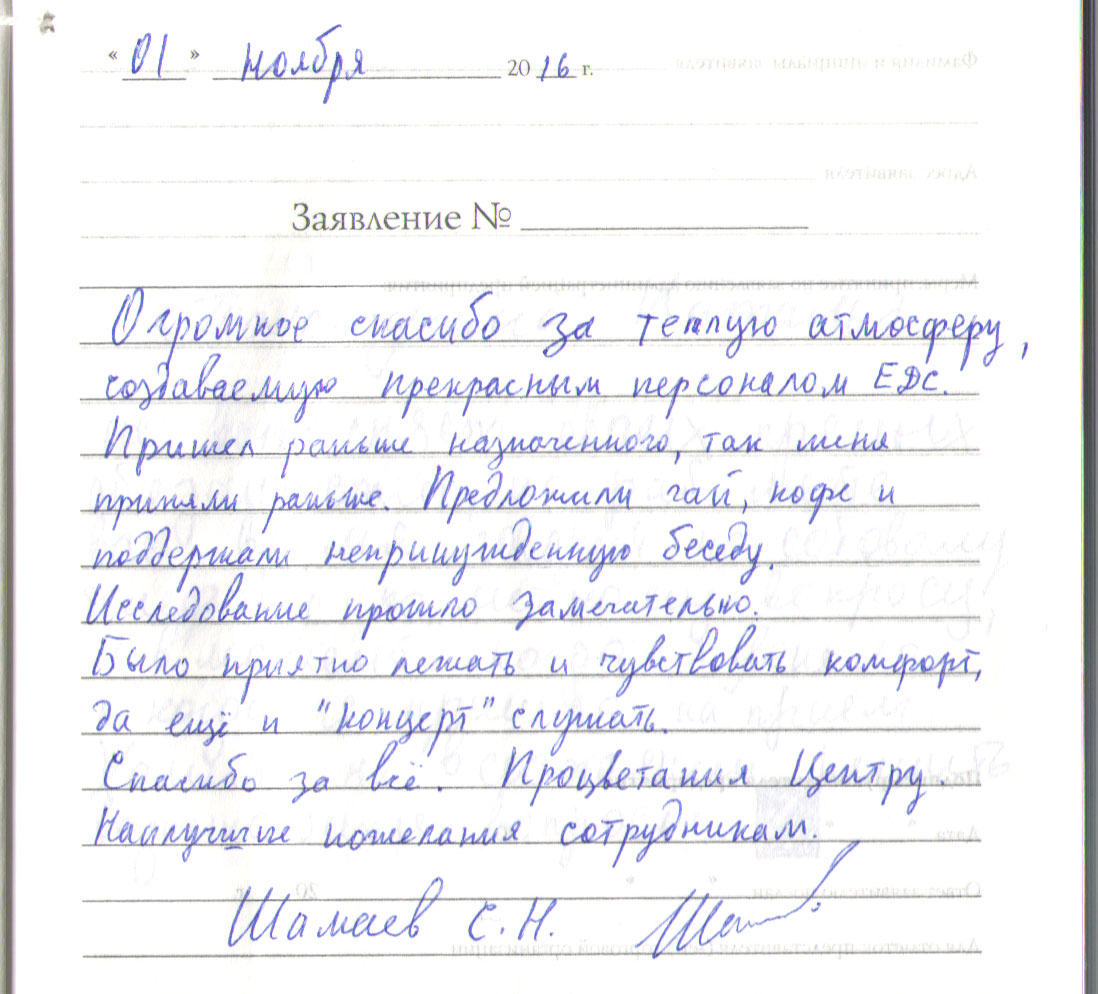 «01» ноября 2016 г.
Заявление №
Огромное спасибо за теплую атмосферу,
создаваемую прекрасным персоналом ЕДС.
Пришел раньше назначенного, так меня
приняли раньше. Предложили чай, кофе и
поддержали непринужденную беседу.
Исследование прошло замечательно.
Было приятно лежать и чувствовать комфорт,
да ещё и "концерт" слушать.
Спасибо за всё. Процветания Центру.
Наилучшие пожелания сотрудникам.
Шамаев С.Н.